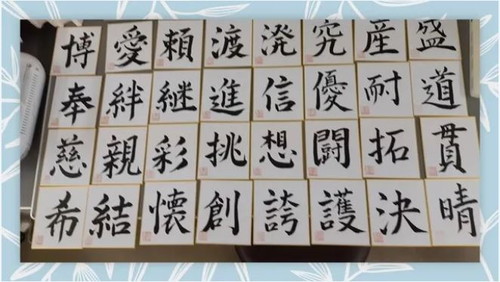 博愛頼渡発究産盛
奉絆継進信優耐道
慈親彩挑想闘拓貫
希結懐創誇護決晴